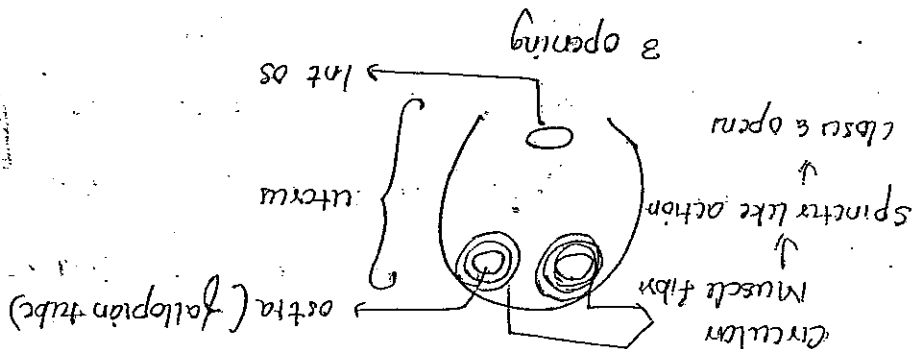 Circular
Muscle fibr
↓
Spincter like action
↓
closes & opens
ostia (fallopian tube)
uterus
Int os
3 opening